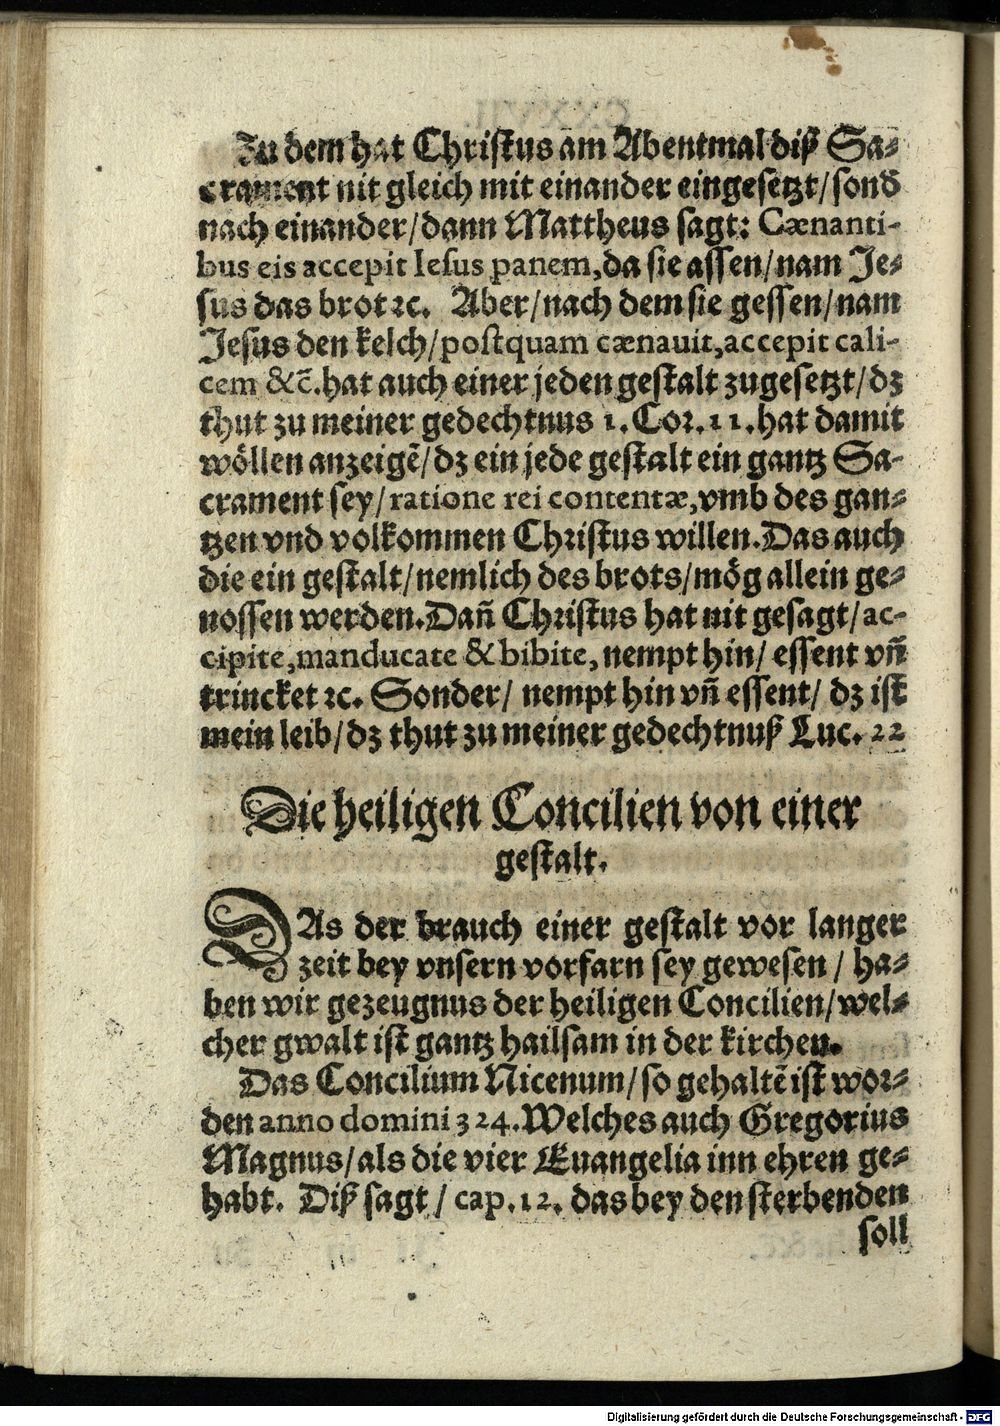 Zu dem hat Christus am Abentmal diß Sa-
crament nit gleich mit einander eingesetzt/sond
nach einander/dann Mattheus sagt: Cænanti-
bus eis accepit Iesus panem,da sie assen/nam Je-
sus das brot ꝛc. Aber/nach dem sie gessen/nam
Jesus den kelch/postquam cænauit,accepit cali-
cem &c̄.hat auch einer jeden gestalt zugesetzt/dz
thut zu meiner gedechtnus 1.Cor.11.hat damit
wöllen anzeigẽ/dz ein jede gestalt ein gantz Sa-
crament sey/ratione rei contentæ,vmb des gan-
tzen vnd volkommen Christus willen.Das auch
die ein gestalt/nemlich des brots/mög allein ge-
nossen werden.Dañ Christus hat nit gesagt/ac-
cipite,manducate & bibite, nempt hin/ essent vñ
trincket ꝛc. Sonder/ nempt hin vñ essent/ dz ist
mein leib/dz thut zu meiner gedechtnuß Luc. 22
Die heiligen Concilien von einer
gestalt.
DAs der brauch einer gestalt vor langer
zeit bey vnsern vorfarn sey gewesen / ha-
ben wir gezeugnus der heiligen Concilien/wel-
cher gwalt ist gantz hailsam in der kirchen.
Das Concilium Nicenum/so gehaltẽ ist wor-
den anno domini 324.Welches auch Gregorius
Magnus/als die vier Euangelia inn ehren ge-
habt. Diß sagt / cap.12. das bey den sterbenden
soll
Digitalisierung gefördert durch die Deutsche Forschungsgemeinschaft - DFG